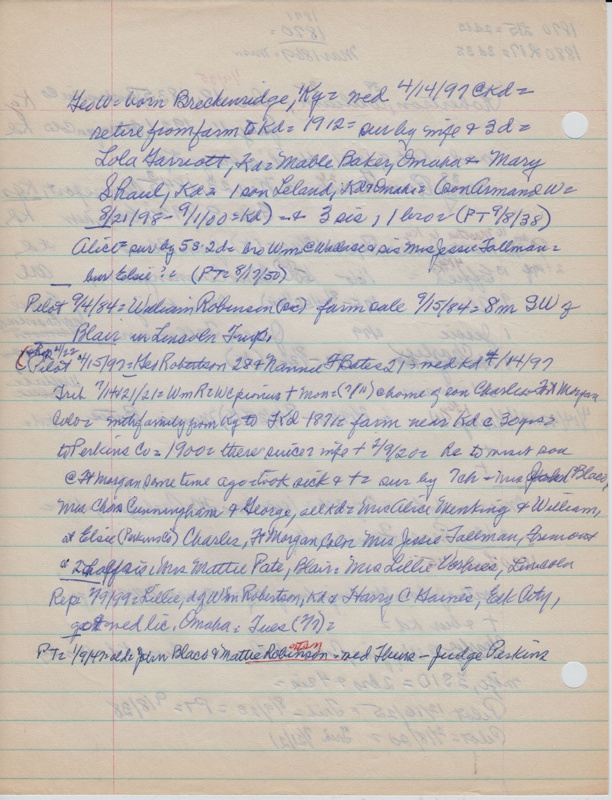 Geo W = born Breckenridge, Ky = med 4/14/97 @ Kd =
retire from farm to Kd = 1912 = sur by wife & 3 d =
Lola Garriott, Kd = Mable Baker, Omaha & Mary
Shaul, Kd = 1 son Leland, Kd & Omaha = (son Armand W =
8/21/98 - 9/1/00 = Kd) = & 3 sis, 1 bro = (PT 9/8/38)
Alice = sur by 5 s - 2 d = bro Wm C & sis Mrs Jessie Tallman =
bur Elsie ? = (PT = 8/17/50)
Pilot 9/4/84 = William Robinson (sic) farm sale 9/15/84 = 8 m SW of
Blair in Lincoln Twp.
Rep 4/22
(Pilot 4/15/97 = Geo Robertson 28 & Nannie F Bates 21 = med Kd 4/14/97
Trib 7/14/21/21 = Wm R = WC pinus + Mon = (7/11) @ home of son Charles = Ft Morgan
Colo = with family from Ky to Kd 1871 = farm near Kd c 3 yrs =
to Perkins Co = 1900 = there since = wife + 2/9/20 = He to visit son
@ Ft Morgan some time ago = took sick & + = sur by 7 ch = Mrs John Blaco,
Mrs Chas Cunningham & George, all Kd = Mrs Alice Menking & William,
at Elsie (Perkins Co) Charles, Ft Morgan, Colo = Mrs Jessie Tallman, Fremont
& 2 half sis, Mrs Mattie Pate, Blair = Mrs Lillie Vorhies, Lincoln
Rep 2/9/99 = Lillie, dg Wm Robertson, Kd & Harry C Gaines, Elk City,
got med lic, Omaha = Tues (2/7) =
PT = 1/9/47 = old = John Blaco & Mattie Robinson = med Thurs - Judge Perkins
rtson